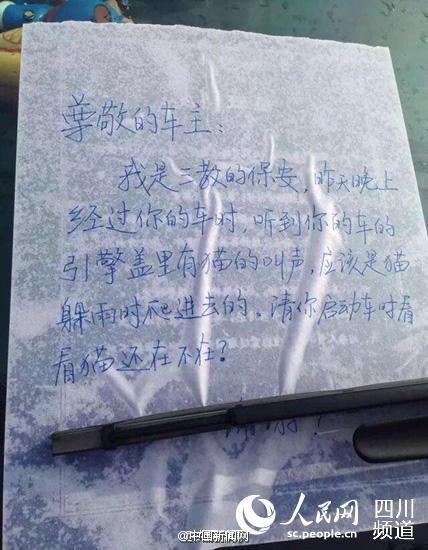 尊敬的车主：
我是三教的保安，昨天晚上
经过你的车时，听到你的车的
引擎盖里有猫的叫声，应该是猫
躲雨时爬进去的。请你启动车时看
看猫还在不在？
人民网 四川
sc.people.cn 频道
@中国新闻网